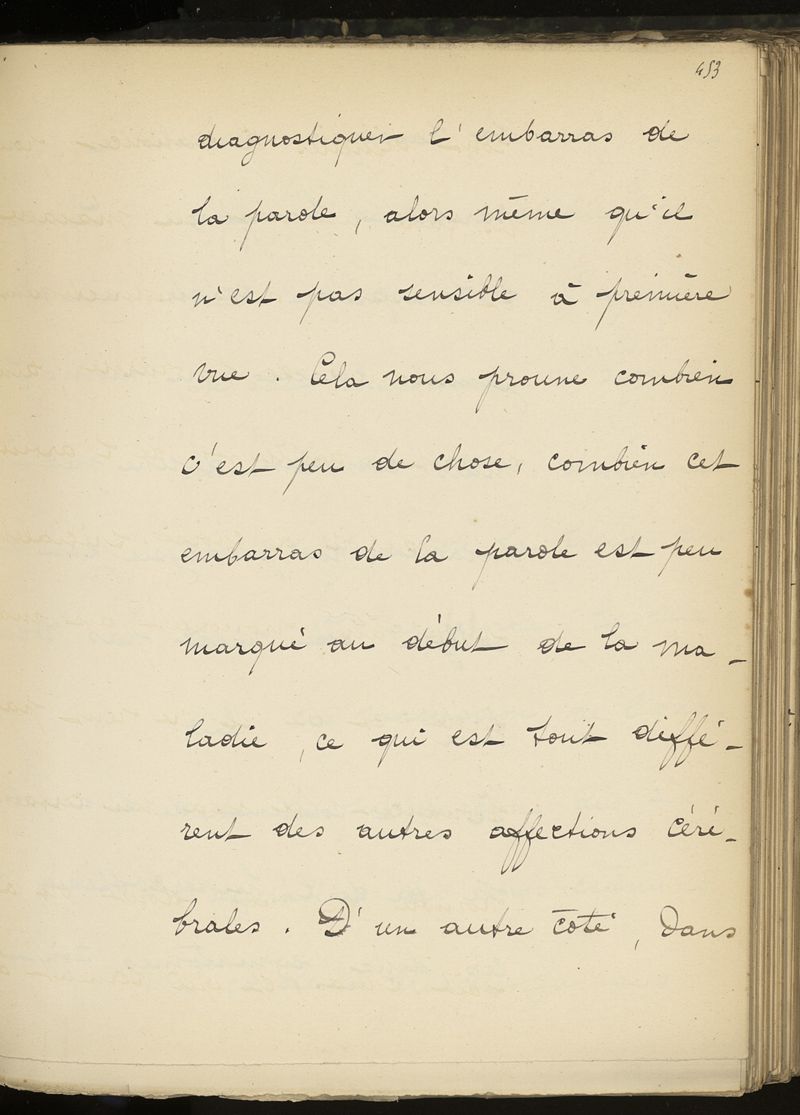 453
diagnostiquer l'embarras de
la parole, alors même qu'il
n'est pas sensible à première
vue. Cela nous prouve combien
c'est peu de chose, combien cet
embarras de la parole est peu
marqué au début de la ma-
ladie, ce qui est tout diffé-
rent des autres affections céré-
brales. D'un autre côté, dans